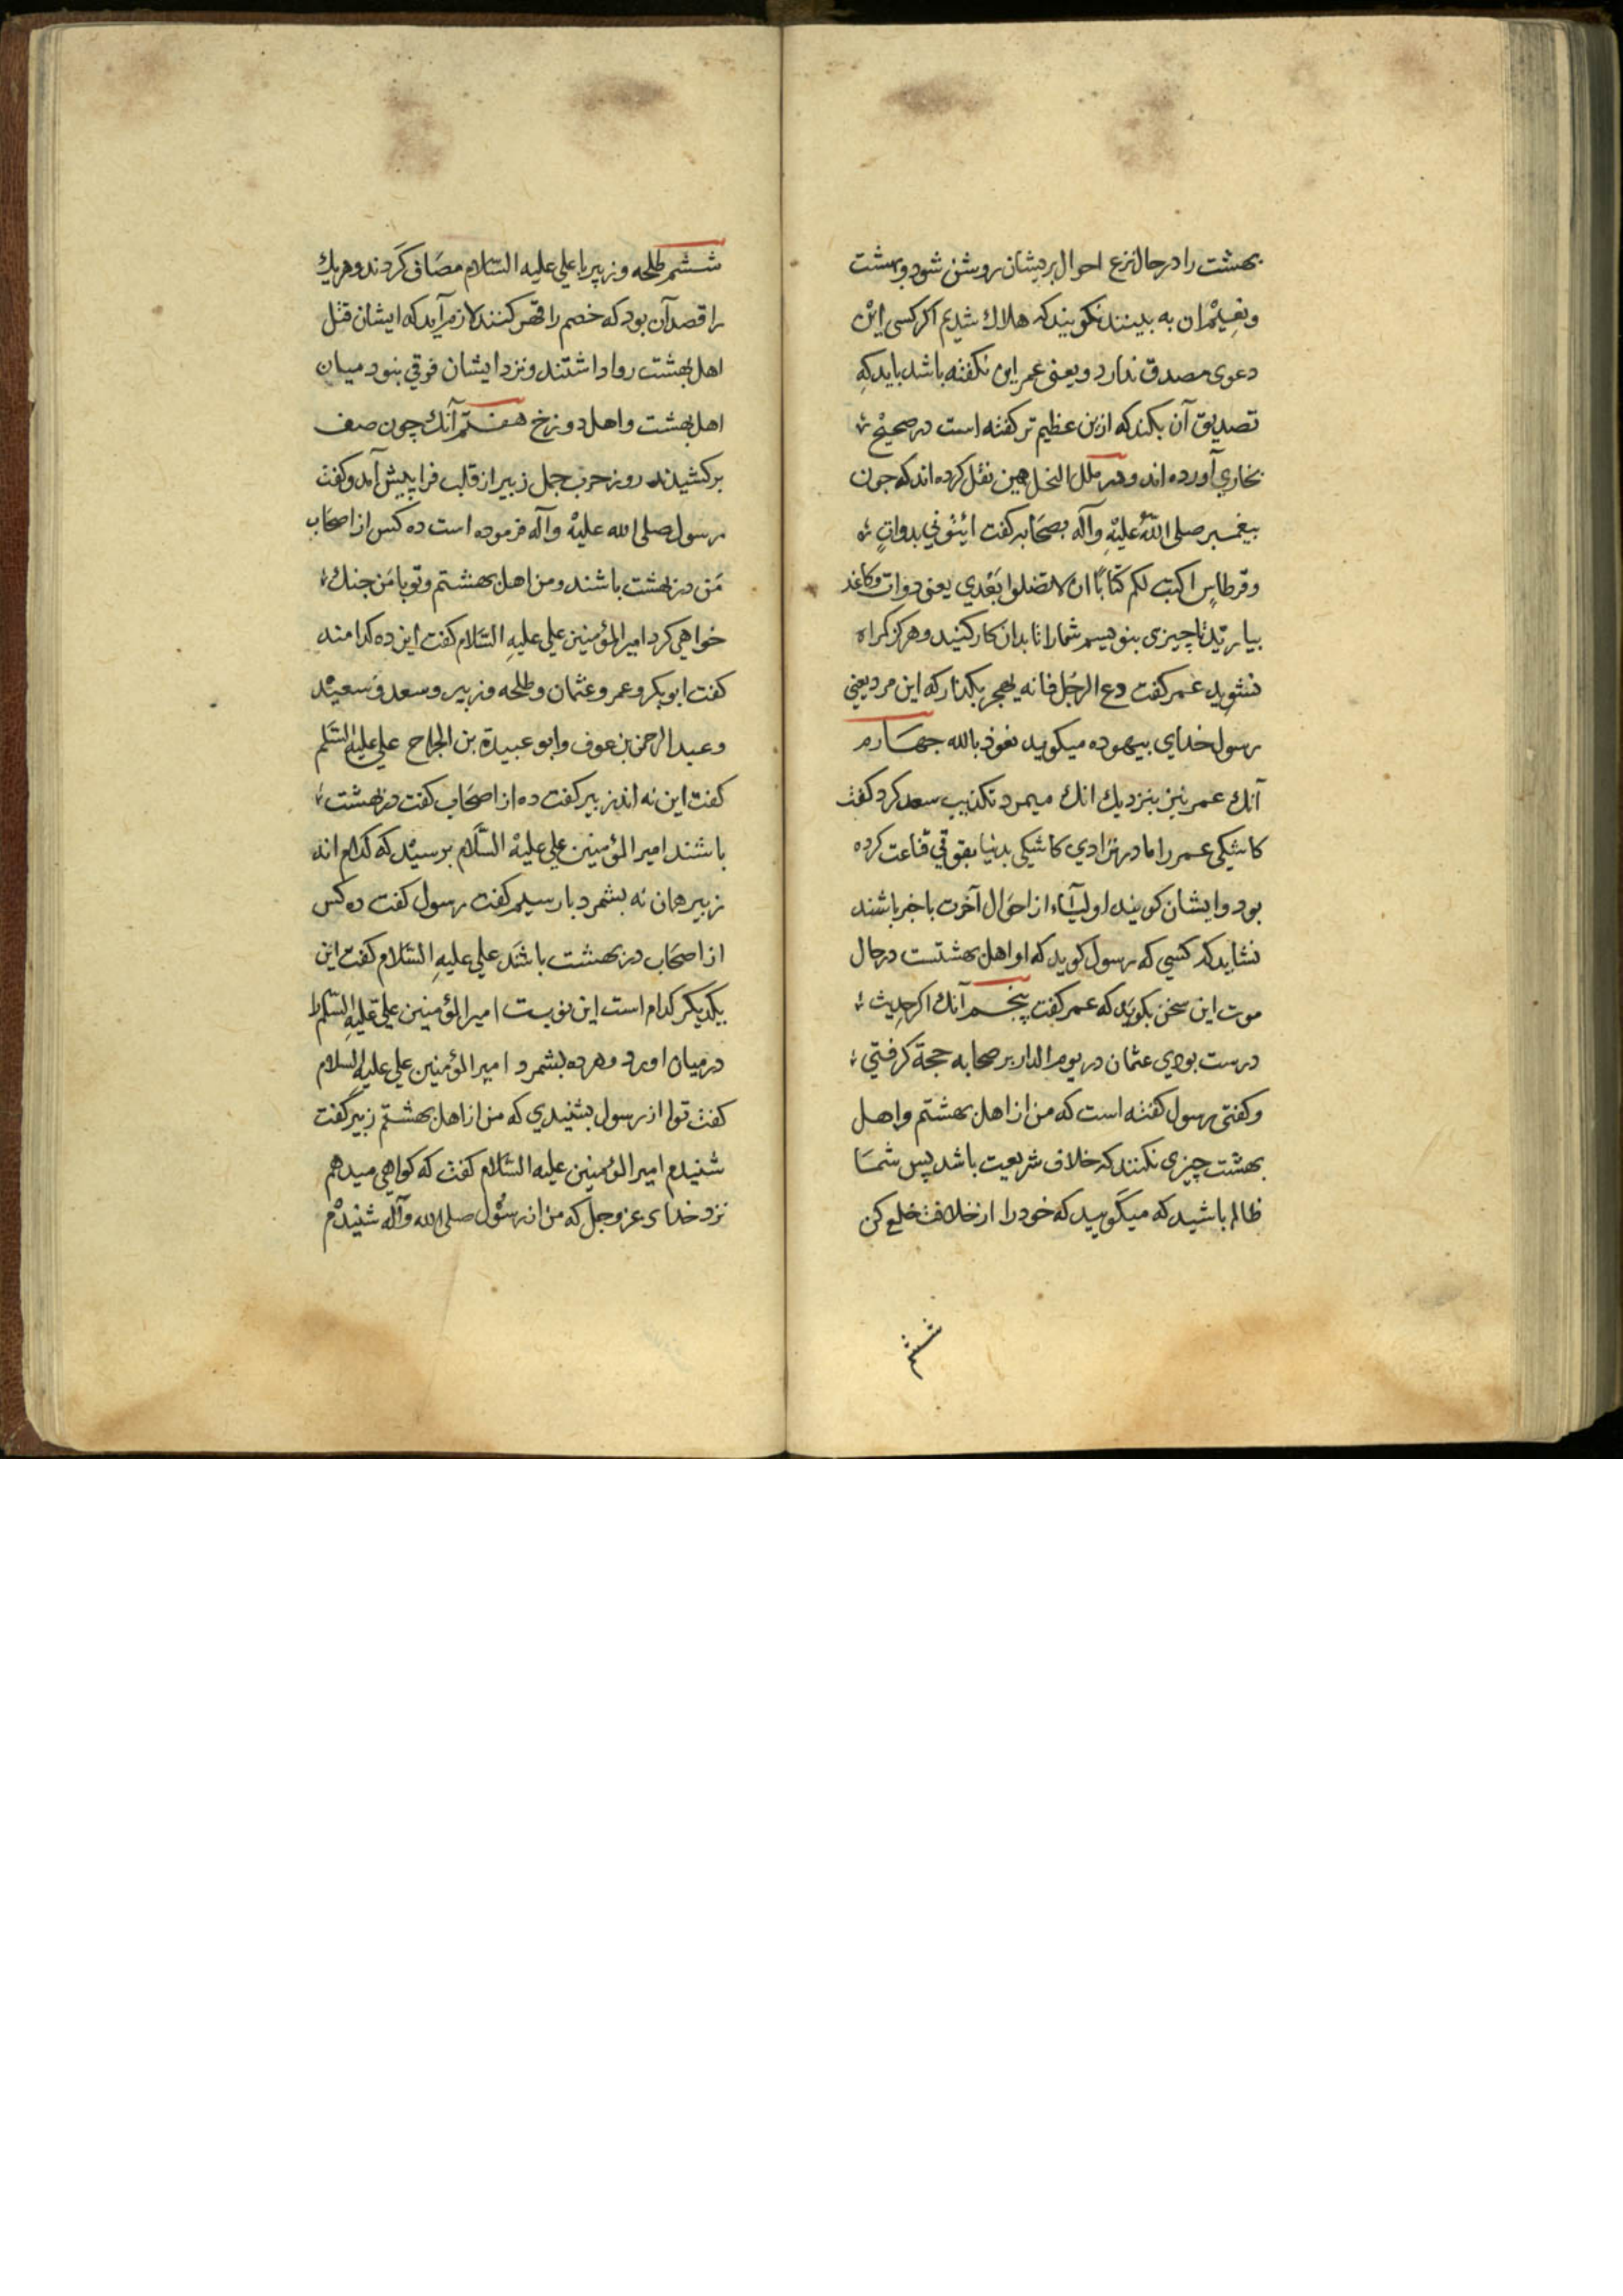 بهشت را در حال نزع احوال بریشان روشن شود و بهشت
و نعیم ان به بینند نکویند که هلاك شدیم اکر کسی این
دعوی مصدق ندارد و یعنی عمر این نکفته باشد باید که
تصدیق آن بکند که ازین عظیم تر کفته است در صحیح
بخاري آورده اند و در ملل النحل همین نقل کرده اند که جون
بیغمبر صلی الله علیه وآله بصحابه کفت ایتوني بدوات
وقرطاس اکتب لکم کتابا ان لا تضلوا بعدي یعنی دوات وکاغد
بیارید تا چیزی بنویسم شما را تا بدان کار کنید و هرکز کمراه
نشوید عمر کفت دع الرجل فانه لیهجر بکذار که این مرد یعني
رسول خدای بیهوده میکوید نعوذ بالله جهارم
آنك عمر نیز بنزدیك انك میمرد تکذیب سعد کرد کفت
کاشکی عمر را مادر نزادي کاشکی بدنیا بقوتي قناعت کرده
بود و ایشان کویند اولیآء از احوال آخرت باخبر باشند
نشاید که کسي که رسول کوید که او اهل بهشتست در حال
موت این سخن بکوید که عمر کفت پنجم آنك اکر حدیث
درست بودي عثمان در یوم الدار بر صحابه حجة کرفتي
و کفتی رسول کفته است که من از اهل بهشتم و اهل
بهشت چیزی نکنند که خلاف شریعت باشد پس شما
ظالم باشید که میکویید که خود را از خلافت خلع کن
ششم
ششم طلحه و زبیر با علي علیه السلام مصاف کردند و هر یك
را قصد آن بود که خصم را قهر کنند لازم آید که ایشان قتل
اهل بهشت روا داشتند و نزد ایشان فرقي بنود میان
اهل بهشت و اهل دوزخ هفتم آنك چون صف
برکشیدند روز حرب جمل زبیر از قلب فرا پیش آمد و کفت
رسول صلی الله علیه وآله فرموده است ده کس از اصحاب
من در بهشت باشند و من اهل بهشتم و تو با من جنك
خواهي کرد امیر المؤمنین علي علیه السلام کفت این ده کدامند
کفت ابوبکر و عمر و عثمان و طلحه و زبیر و سعد و سعید
و عبد الرحمن بن عوف و ابو عبیدة بن الجراح علي علیه السلم
کفت این نه اند زبیر کفت ده از اصحاب کفت در بهشت
باشند امیر المؤمنین علي علیه السلام برسید که کدام اند
زبیر همان نه بشمرد بار سیم کفت رسول کفت ده کس
از اصحاب در بهشت باشند علي علیه السلام کفت این
یکدیکر کدام است این نوبت امیر المؤمنین علي علیه السلم را
در میان اورد و هر ده بشمرد امیر المؤمنین علي علیه السلام
کفت توا از رسول بشنیدي که من از اهل بهشتم زبیر کفت
شنیدم امیر المؤمنین علیه السلام کفت که کواهي میدهم
نزد خدای عز وجل که من از رسول صلی الله وآله شنیدم